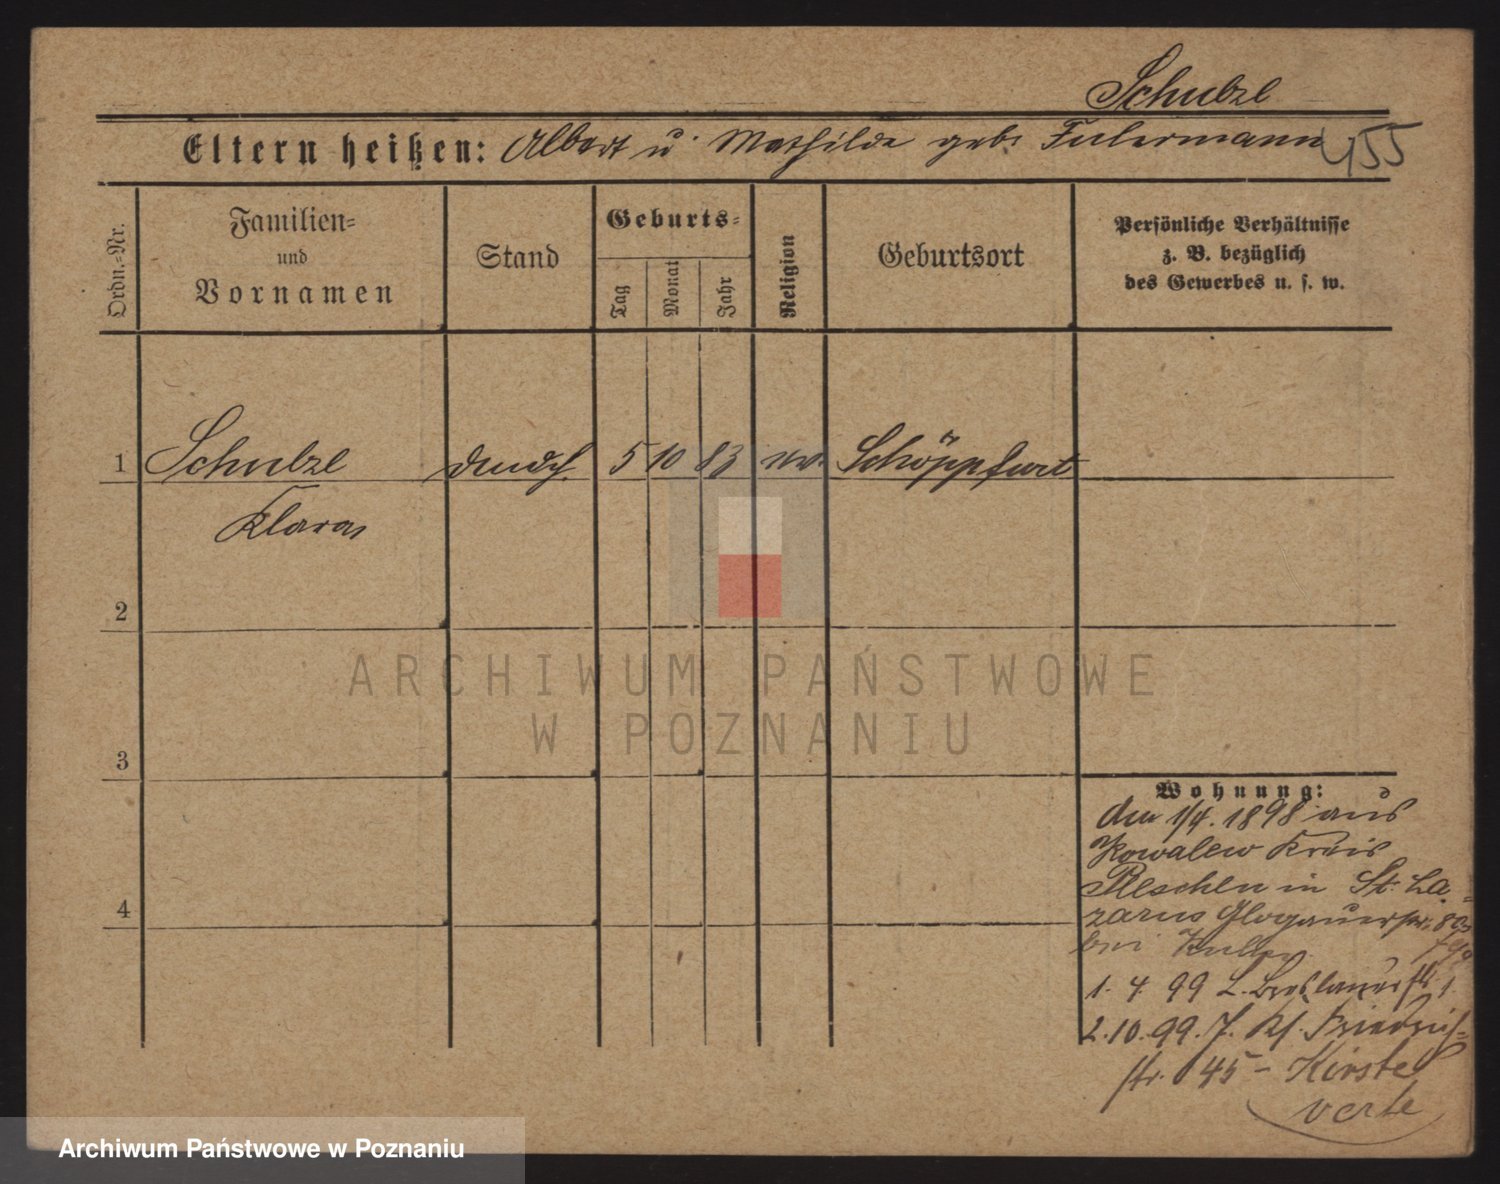 Schulze
Eltern heißen: Albert u. Mathilde geb.
455
Ordn.-Nr.
Familien-
und
Vornamen
Stand
Geburts-
Tag
Monat
Jahr
Religion
Geburtsort
Persönliche Verhältnisse
z. B. bezüglich
des Gewerbes u. s. w.
1 Schulze 5 10 83 ev. Schöpfurt
Klara
2
ARCHIWUM PAŃSTWOWE
W POZNANIU
3
Wohnung:
den 1/4. 1898 aus
Kowalew Kreis
Pleschen in St. La-
zarus Glogauerstr. 89
bei
1. 4. 99 L. Breslauerstr. 1
2. 10. 99. Friedrich-
str. 45 - Kirste
verte
4
Archiwum Państwowe w Poznaniu